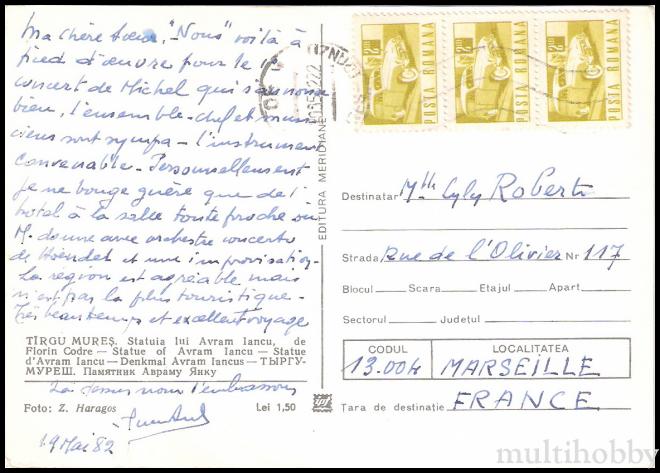 Ma chère sœur, "Nous" voilà à
pied d'œuvre pour le 1er
concert de Michel qui s'annonce
bien, l'ensemble chef et musi
ciens sont sympa - l'instrument
convenable - Personnellement
je ne bouge guère que de l'
hotel à la salle toute proche où
M. donne avec orchestre concerto
de Haendel et une improvisation -
La région est agréable mais
n'est pas la plus touristique -
Très beau temps et excellent voyage
TÎRGU MUREȘ. Statuia lui Avram Iancu, de
Florin Codre — Statue of Avram Iancu — Statue
d'Avram Iancu — Denkmal Avram Iancus — ТЫРГУ-
МУРЕШ. Памятник Авраму Янку
nous t'embrassons
Foto: Z. Haragos Lei 1,50
19 Mai 82
EDITURA MERIDIANE
POSTA ROMANA
POSTA ROMANA
POSTA ROMANA
Destinatar Mlle Lyly Robert
Strada Rue de l'Olivier Nr 117
Blocul Scara Etajul Apart.
Sectorul Județul
CODUL LOCALITATEA
13.004 MARSEILLE
Țara de destinație FRANCE
multihobby